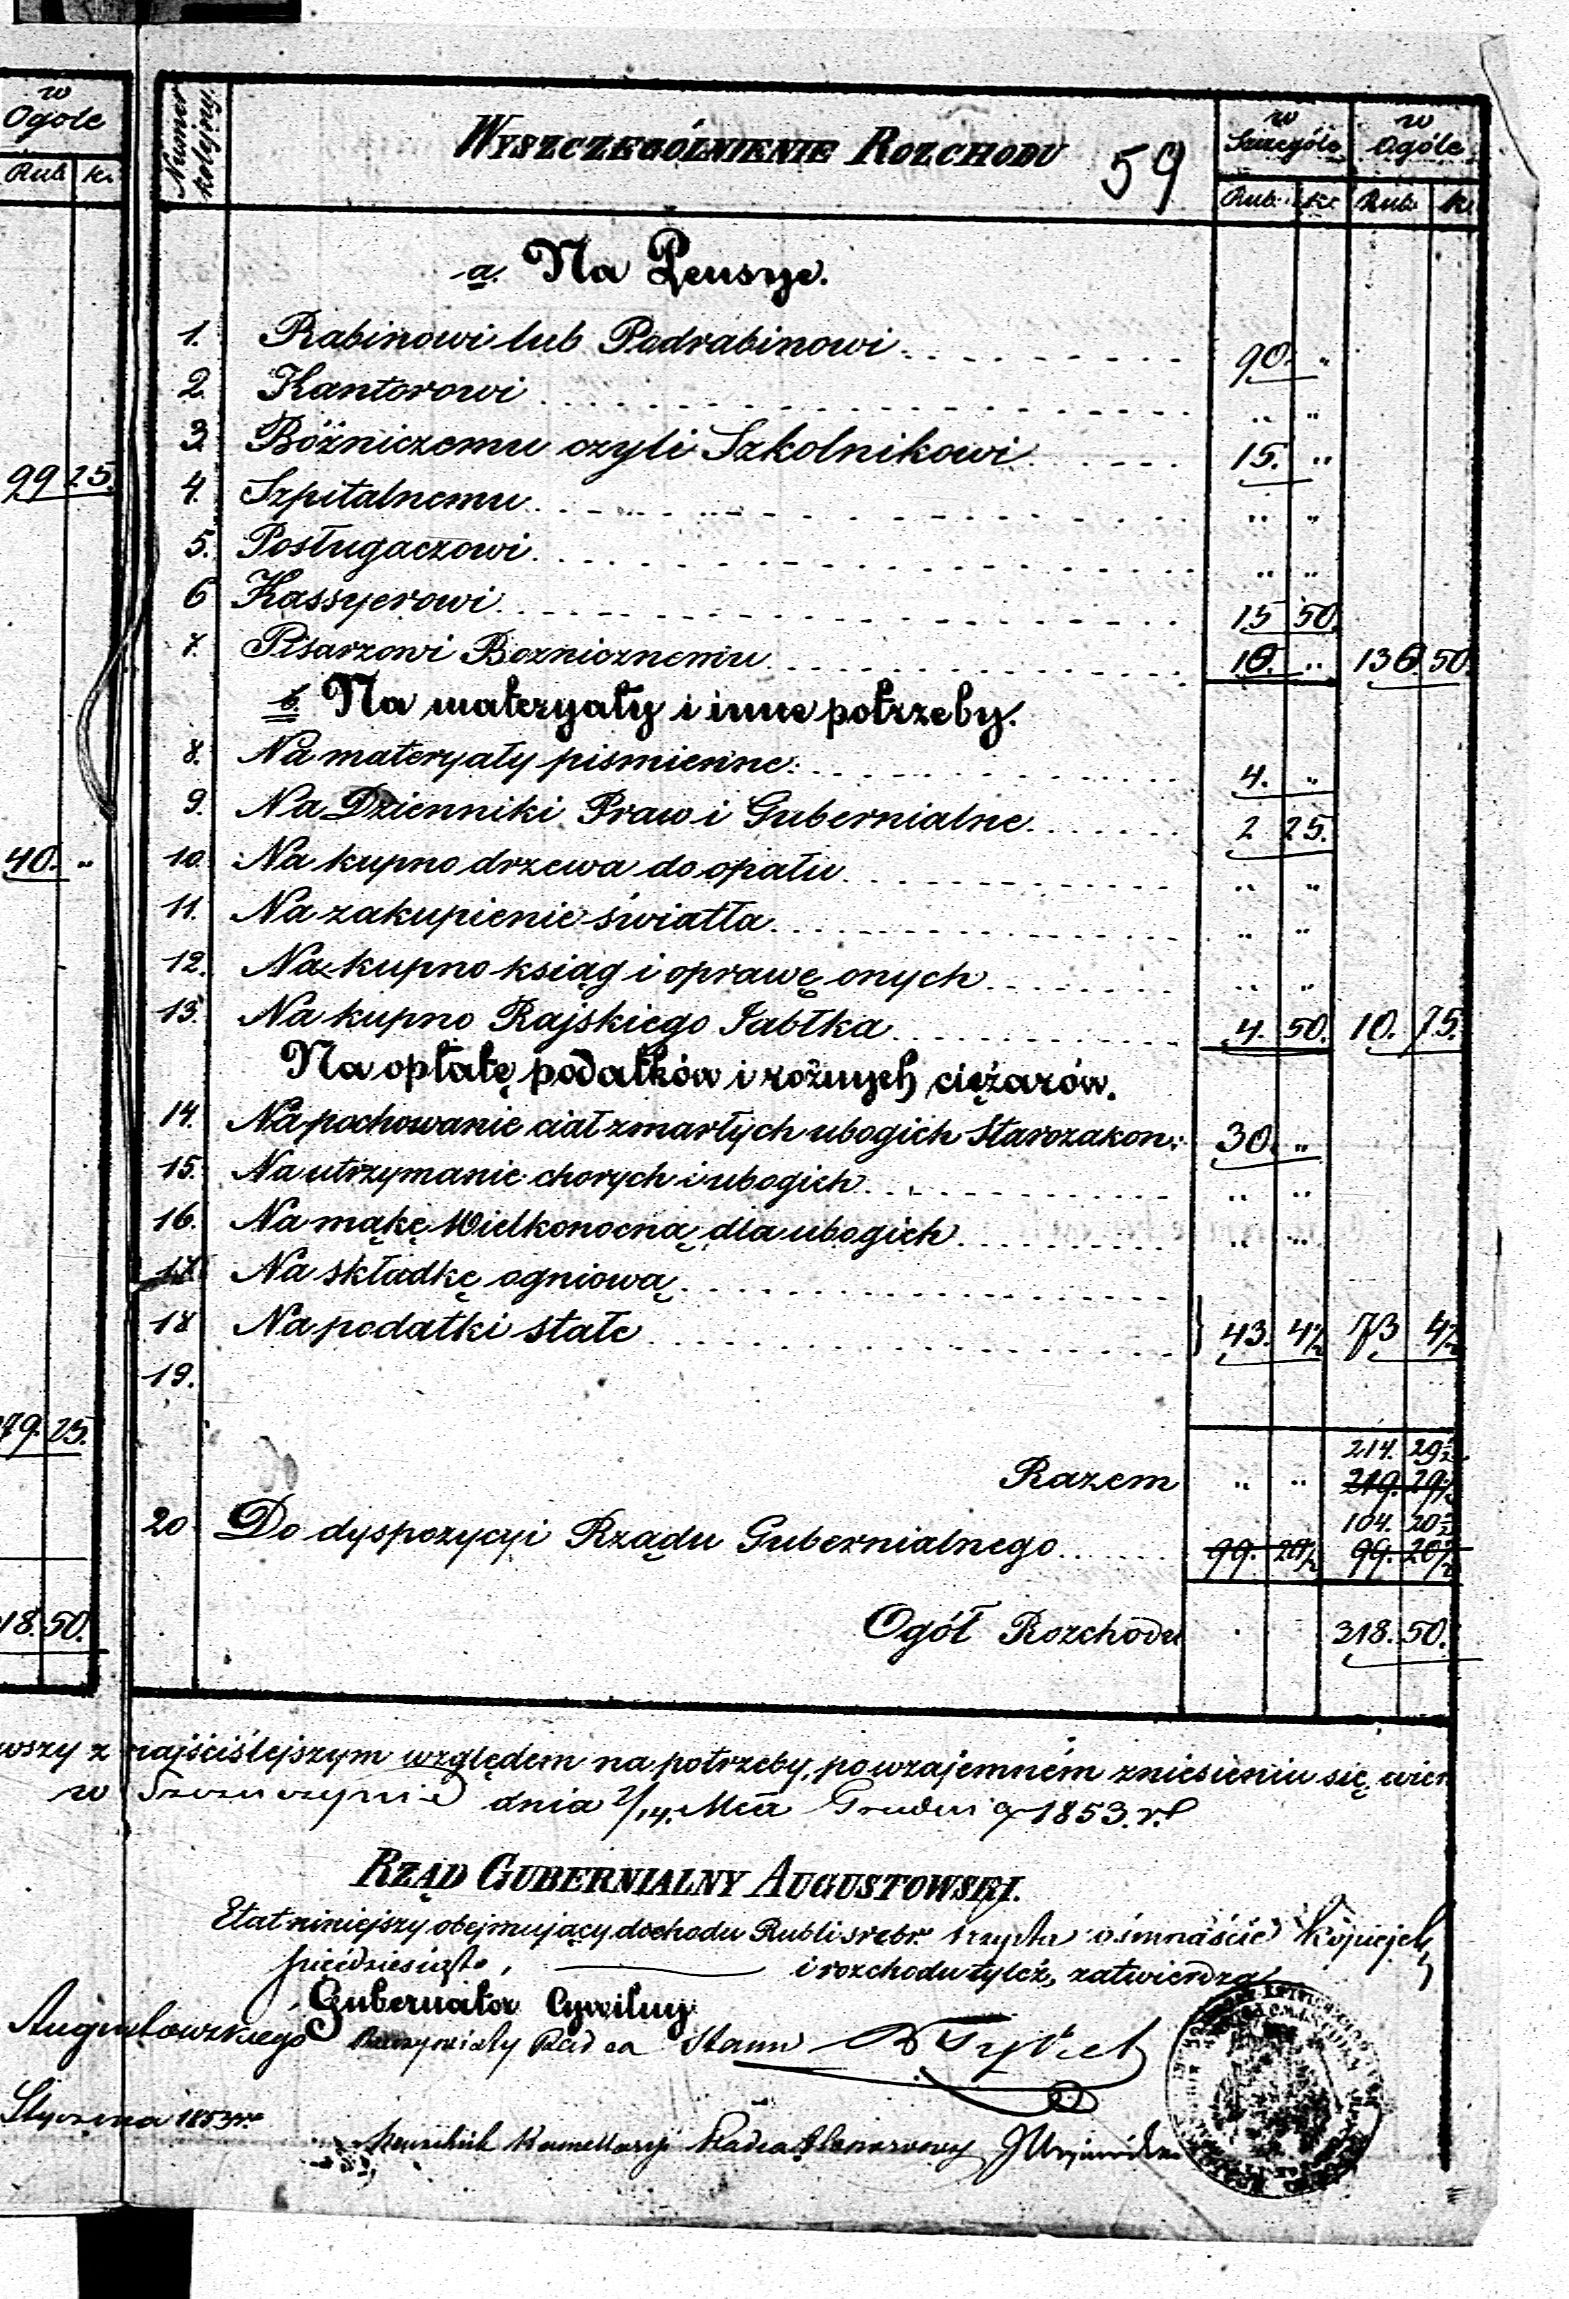 w
Ogóle
Rub. k.
99 25.
40. "
79. 25.
18. 50.
Numer kolejny.
WYSZCZEGÓLNIENIE ROZCHODU 59
w Szczególe
w Ogóle
Rub. k. Rub. k.
a. Na Pensye.
1. Rabinowi lub Podrabinowi 90. "
2. Kantorowi " "
3. Bóźniczemu czyli Szkolnikowi 15. "
4. Szpitalnemu " "
5. Posługaczowi " "
6 Kassyerowi 15 50.
7. Pisarzowi Boznicznemu 10. " 130 50.
b. Na materyały i inne potrzeby.
8. Na materyały piśmienne: 4. "
9. Na Dzienniki Praw i Gubernialne 2 25.
10. Na kupno drzewa do opału " "
11. Na zakupienie światła " "
12. Na kupno ksiąg i oprawę onych " "
13. Na kupno Rajskiego Jabłka 4. 50. 10. 75.
Na opłatę podatków i rożnych ciężarów.
14. Na pochowanie ciał zmarłych ubogich Starozakon: 30. "
15. Na utrzymanie chorych i ubogich " "
16. Na mąkę Wielkonocną dla ubogich " "
17. Na składkę ogniową
18 Na podatki stałe } 43. 4½ 73 4½
19.
214. 29½
Razem " " 219. 29½
104. 20½
20 Do dyspozycyi Rządu Gubernialnego 99. 20½ 99. 20½
Ogół Rozchodu 318. 50.
wszy z najściślejszym względem na potrzeby, po wzajemném zniesieniu się, wier
w Szczuczynie dnia 2/14. Mca Grudnia 1853. r.
RZĄD GUBERNIALNY AUGUSTOWSKI.
Etat niniejszy obejmujący dochodu Rubli srebr. trzysta ośmnaście kopiejek
pięćdziesiąt, i rozchodu tyleż, zatwierdza
Gubernator Cywilny
Augustowskiego
Rzeczywisty Radca Stanu
Stycznia 1853 r.
Naczelnik Kancellaryi Radca Honorowy